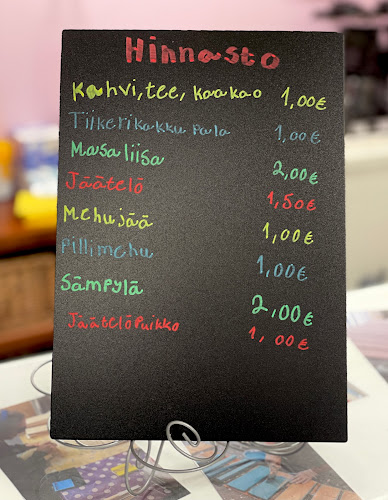 Hinnasto
Kahvi, tee, kaakao 1,00€
Tiikerikakku pala 1,00€
Masaliisa 2,00€
Jäätelö 1,50€
Mehujää 1,00€
Pillimehu 1,00€
Sämpylä 2,00€
Jäätelöpuikko 1,00€